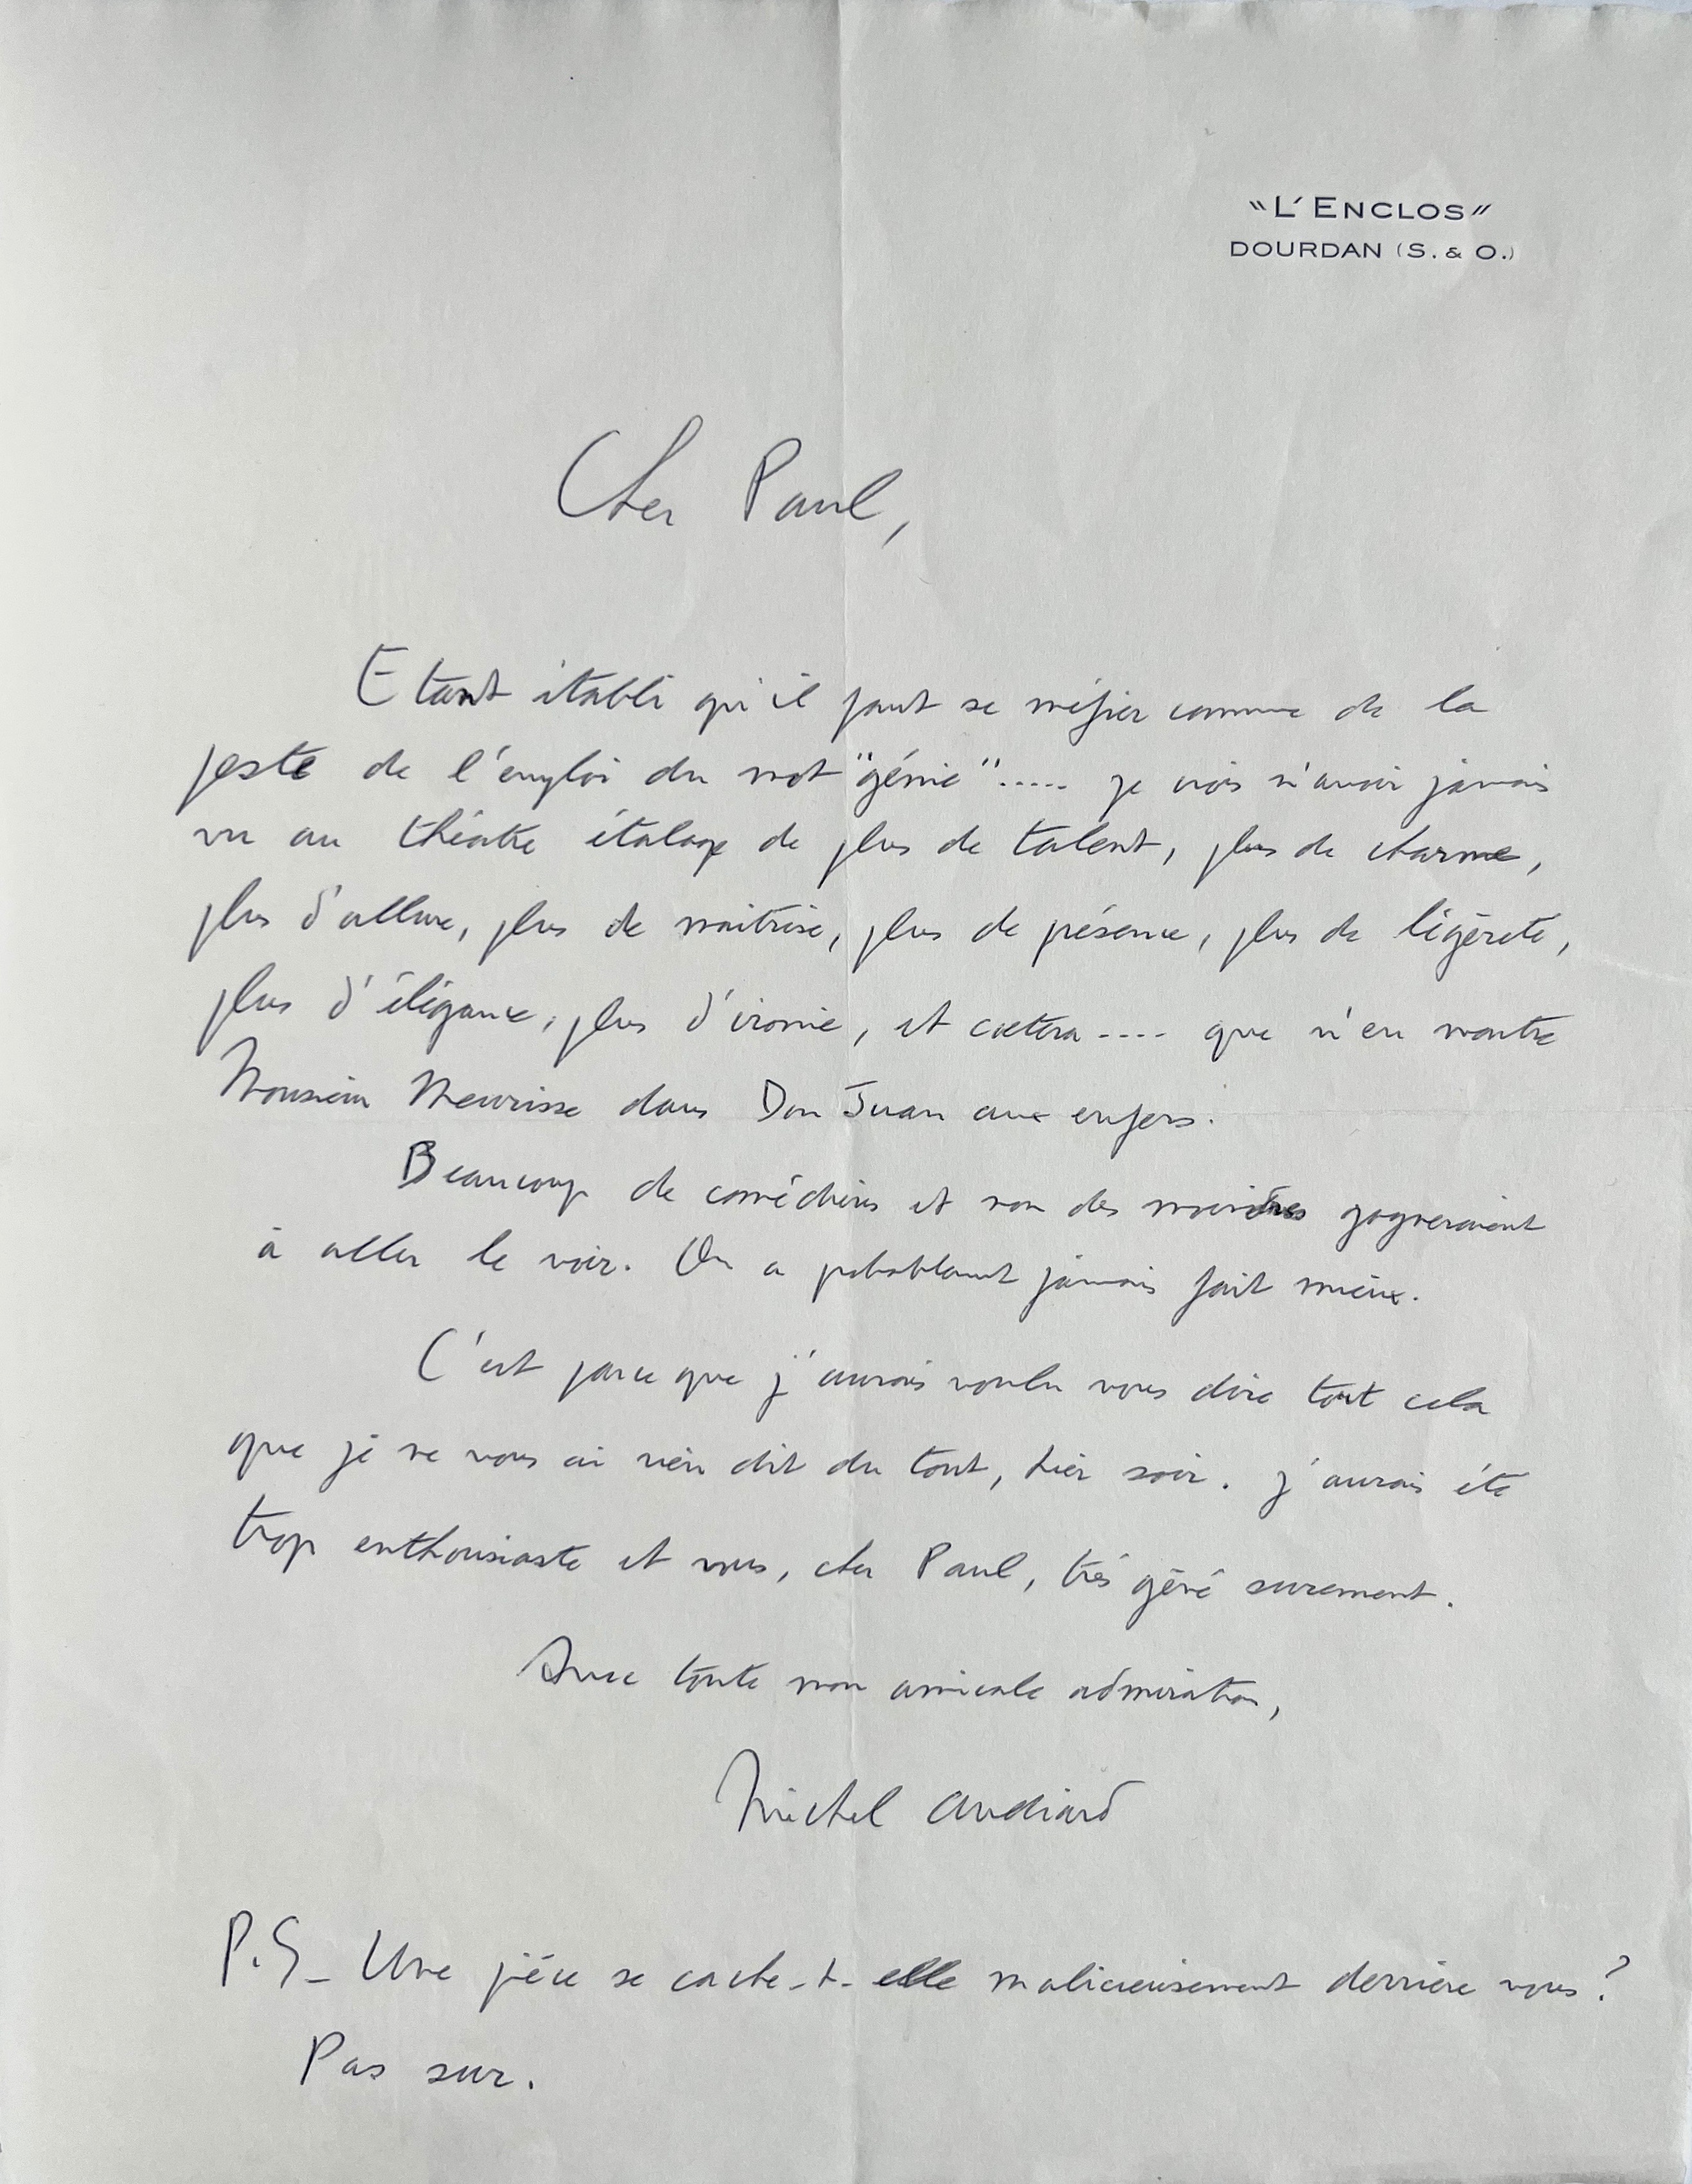 "L'ENCLOS"
DOURDAN (S. & O.)
Cher Paul,
Etant établi qu'il faut se méfier comme de la
peste de l'emploi du mot "génie"..... je crois n'avoir jamais
vu au théâtre étalage de plus de talent, plus de charme,
plus d'allure, plus de maitrise, plus de présence, plus de légèreté,
plus d'élégance, plus d'ironie, et caetera .... que n'en montre
Monsieur Meurisse dans Don Juan aux enfers.
Beaucoup de comédiens et non des moindres gagneraient
à aller le voir. On a probablement jamais fait mieux.
C'est parce que j'aurais voulu vous dire tout cela
que je ne vous ai rien dit du tout, hier soir. J'aurais été
trop enthousiaste et vous, cher Paul, très gêné surement.
Avec toute mon amicale admiration,
Michel Audiard
P.S_ Une pièce se cache-t-elle malicieusement derrière vous ?
Pas sur.